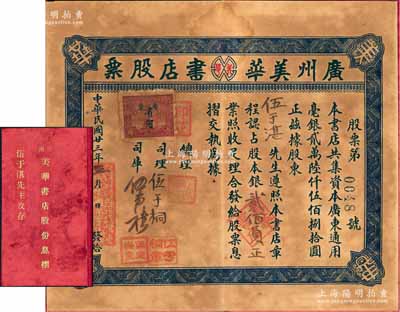 上海陽明拍賣
廣州美華書店股票
股票第0028號
本書店共集資本廣東通用
毫銀貳萬陸仟伍佰捌拾圓
正茲據股東
伍于湛先生遵照本書店章
程認占股本銀貳佰員正
業照收妥理合發給股票息
摺交執為據
總經理
司理伍于桐
司庫
中華民國廿三年 月 日發給
美華書店股份息摺
伍于湛先生收存
上海陽明拍賣